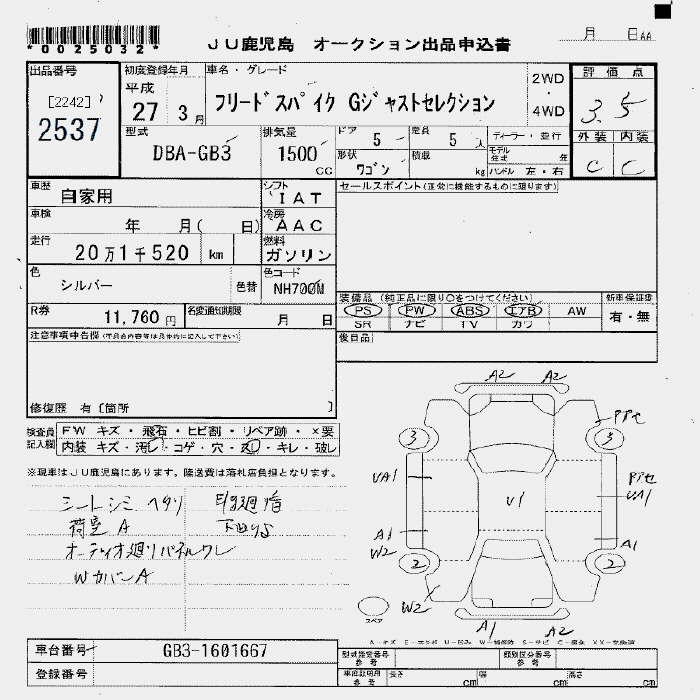 *0025032*
JU鹿児島 オークション出品申込書
月 日AA
出品番号
[2242]
2537
初度登録年月
平成
27 3月
車名・グレード
フリードスパイク Gジャストセレクション
2WD
・
4WD
評価点
3.5
外装 内装
C C
型式
DBA-GB3
排気量
1500
CC
ドア 5
定員 5人
ディーラー・並行
形状 ワゴン
積載 kg
モデル年式 年
ハンドル 左・右
車歴
自家用
シフト
IAT
セールスポイント(正常に機能するものに限ります)
車検
年 月( 日)
冷房
AAC
走行
20万1千520 km
燃料
ガソリン
色
シルバー
色替
色コード
NH700M
装備品 (純正品に限り○をつけてください)
新車保証書
PS PW ABS エアB AW
有・無
SR ナビ TV カワ
R券
11,760円
名変通知期限
月 日
後日品
注意事項申告欄(不具合内容等は具体的に記入して下さい)
修復歴 有〔箇所 〕
検査員記入欄
FW キズ・飛石・ヒビ割・リペア跡・×要
内装 キズ・汚レ・コゲ・穴・スレ・キレ・破レ
※現車はJU鹿児島にあります。陸送費は落札店負担となります。
シートシミ ヘタリ
荷室 A
オーディオ廻りパネルワレ
Wカバー A
下回りサビ
A2 A2
3 3
UA1
U1
A1
W2
A1
2 2
W2
A1 A2
スペア
車台番号
GB3-1601667
登録番号
型式指定番号
参考
類別区分番号
参考
車庫証明用
参考
長さ cm
幅 cm
高さ cm